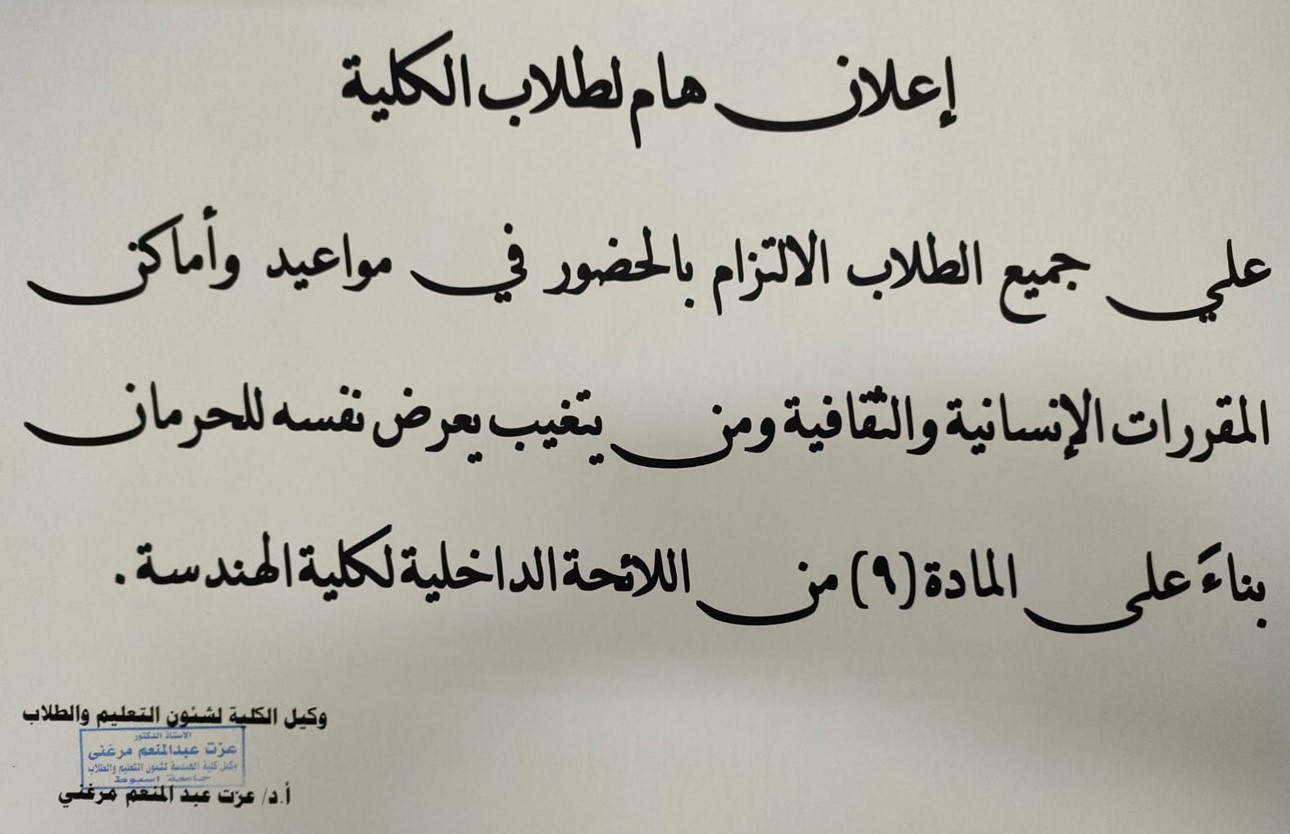 إعلان هام لطلاب الكلية
علي جميع الطلاب الالتزام بالحضور في مواعيد وأماكن
المقررات الإنسانية والثقافية ومن يتغيب يعرض نفسه للحرمان
بناءً على المادة (٩) من اللائحة الداخلية لكلية الهندسة .
وكيل الكلية لشئون التعليم والطلاب
الأستاذ الدكتور
عزت عبدالمنعم مرغنى
وكيل كلية الهندسة لشئون التعليم والطلاب
جامعة اسيوط
أ.د/ عزت عبد المنعم مرغني